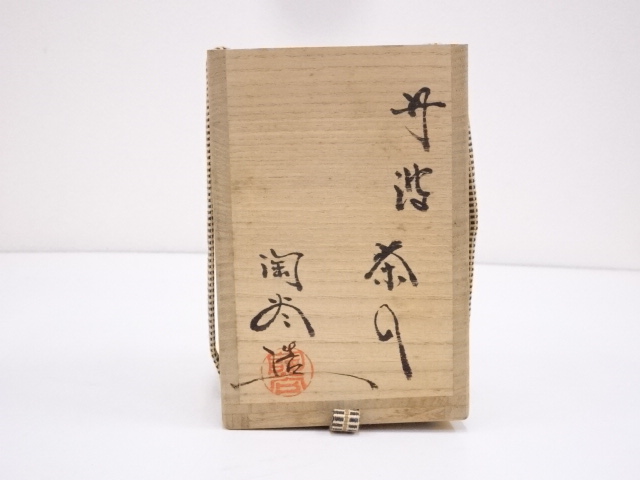 丹波 茶入
陶谷造